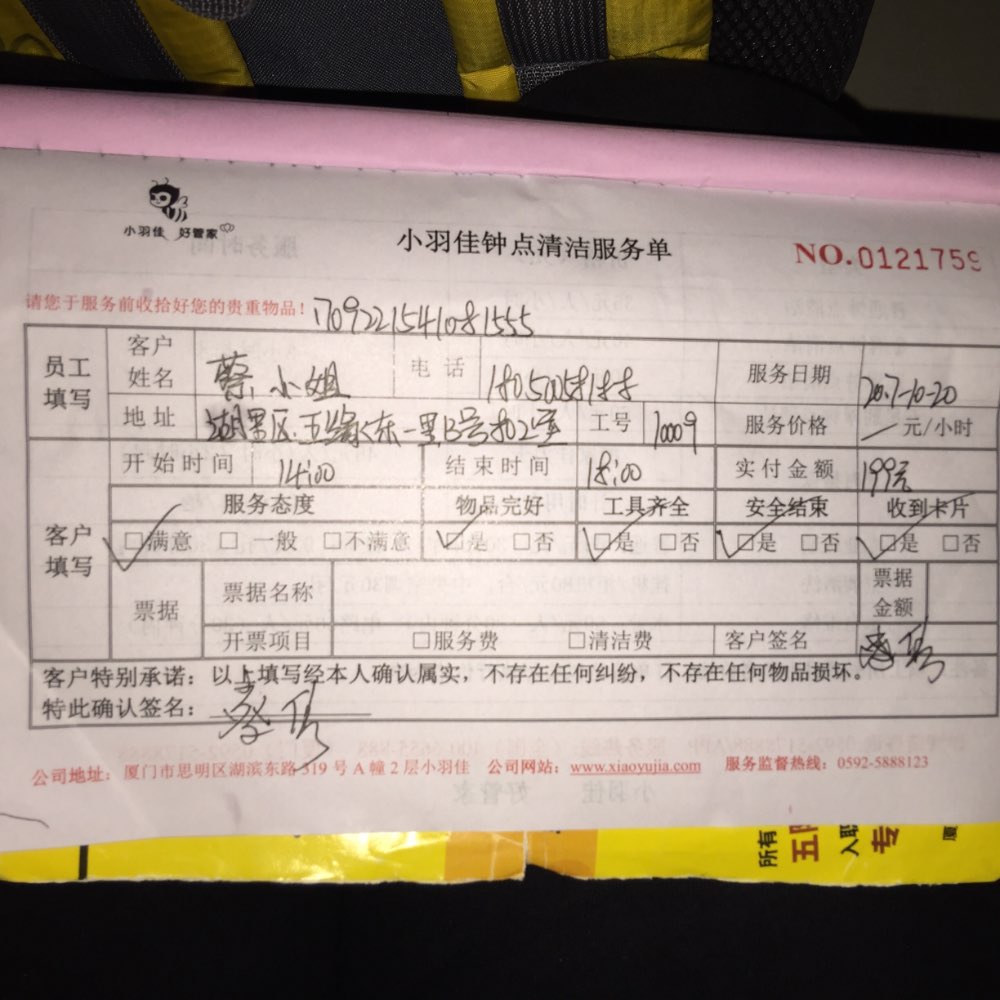 小羽佳 好管家
小羽佳钟点清洁服务单
NO.0121759
请您于服务前收拾好您的贵重物品!
员工填写 客户姓名 蔡小姐 电话 服务日期 2017-10-20
地址 工号 10009 服务价格 元/小时
客户填写 开始时间 14:00 结束时间 18:00 实付金额 199元
服务态度 物品完好 工具齐全 安全结束 收到卡片
☑满意 □一般 □不满意 ☑是 □否 ☑是 □否 ☑是 □否 ☑是 □否
票据 票据名称 票据金额
开票项目 □服务费 □清洁费 客户签名
客户特别承诺:以上填写经本人确认属实,不存在任何纠纷,不存在任何物品损坏。
特此确认签名:
公司地址:厦门市思明区湖滨东路319号A幢2层小羽佳 公司网站:www.xiaoyujia.com 服务监督热线:0592-5888123
所有
入职